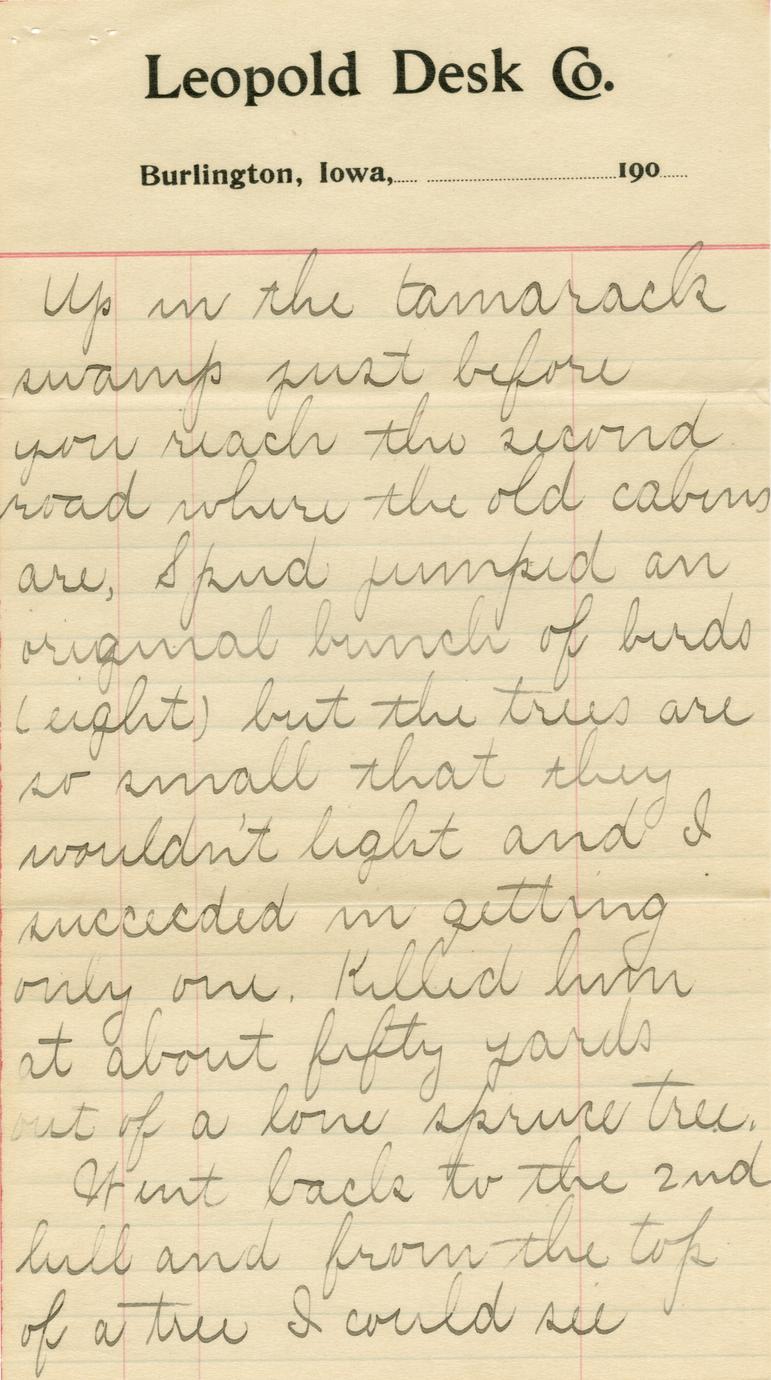 Leopold Desk Co.
Burlington, Iowa, 190
Up in the tamarack
swamp just before
you reach the second
road where the old cabins
are, Spud jumped an
original bunch of birds
(eight) but the trees are
so small that they
wouldn't light and I
succeeded in getting
only one. Killed him
at about fifty yards
out of a lone spruce tree.
Went back to the 2nd
hill and from the top
of a tree I could see